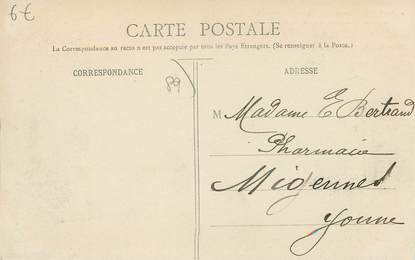 6€
CARTE POSTALE
La Correspondance au recto n'est pas acceptée par tous les Pays Étrangers. (Se renseigner à la Poste.)
CORRESPONDANCE
ADRESSE
89
M Madame E Bertrand
Pharmacie
Migennes
Yonne